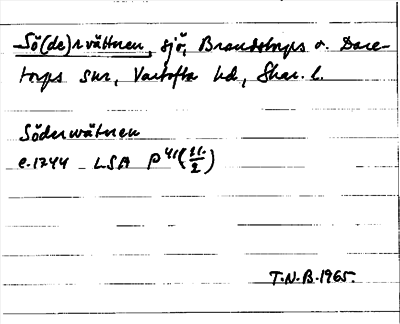 Sö(de)rvättnen, sjö, Brandstorps o. Dare-
torps snr, Vartofta hd, Skar. l.
Söderwätnen
c.1744 LSA P41(11/2)
T.N.B.1965.